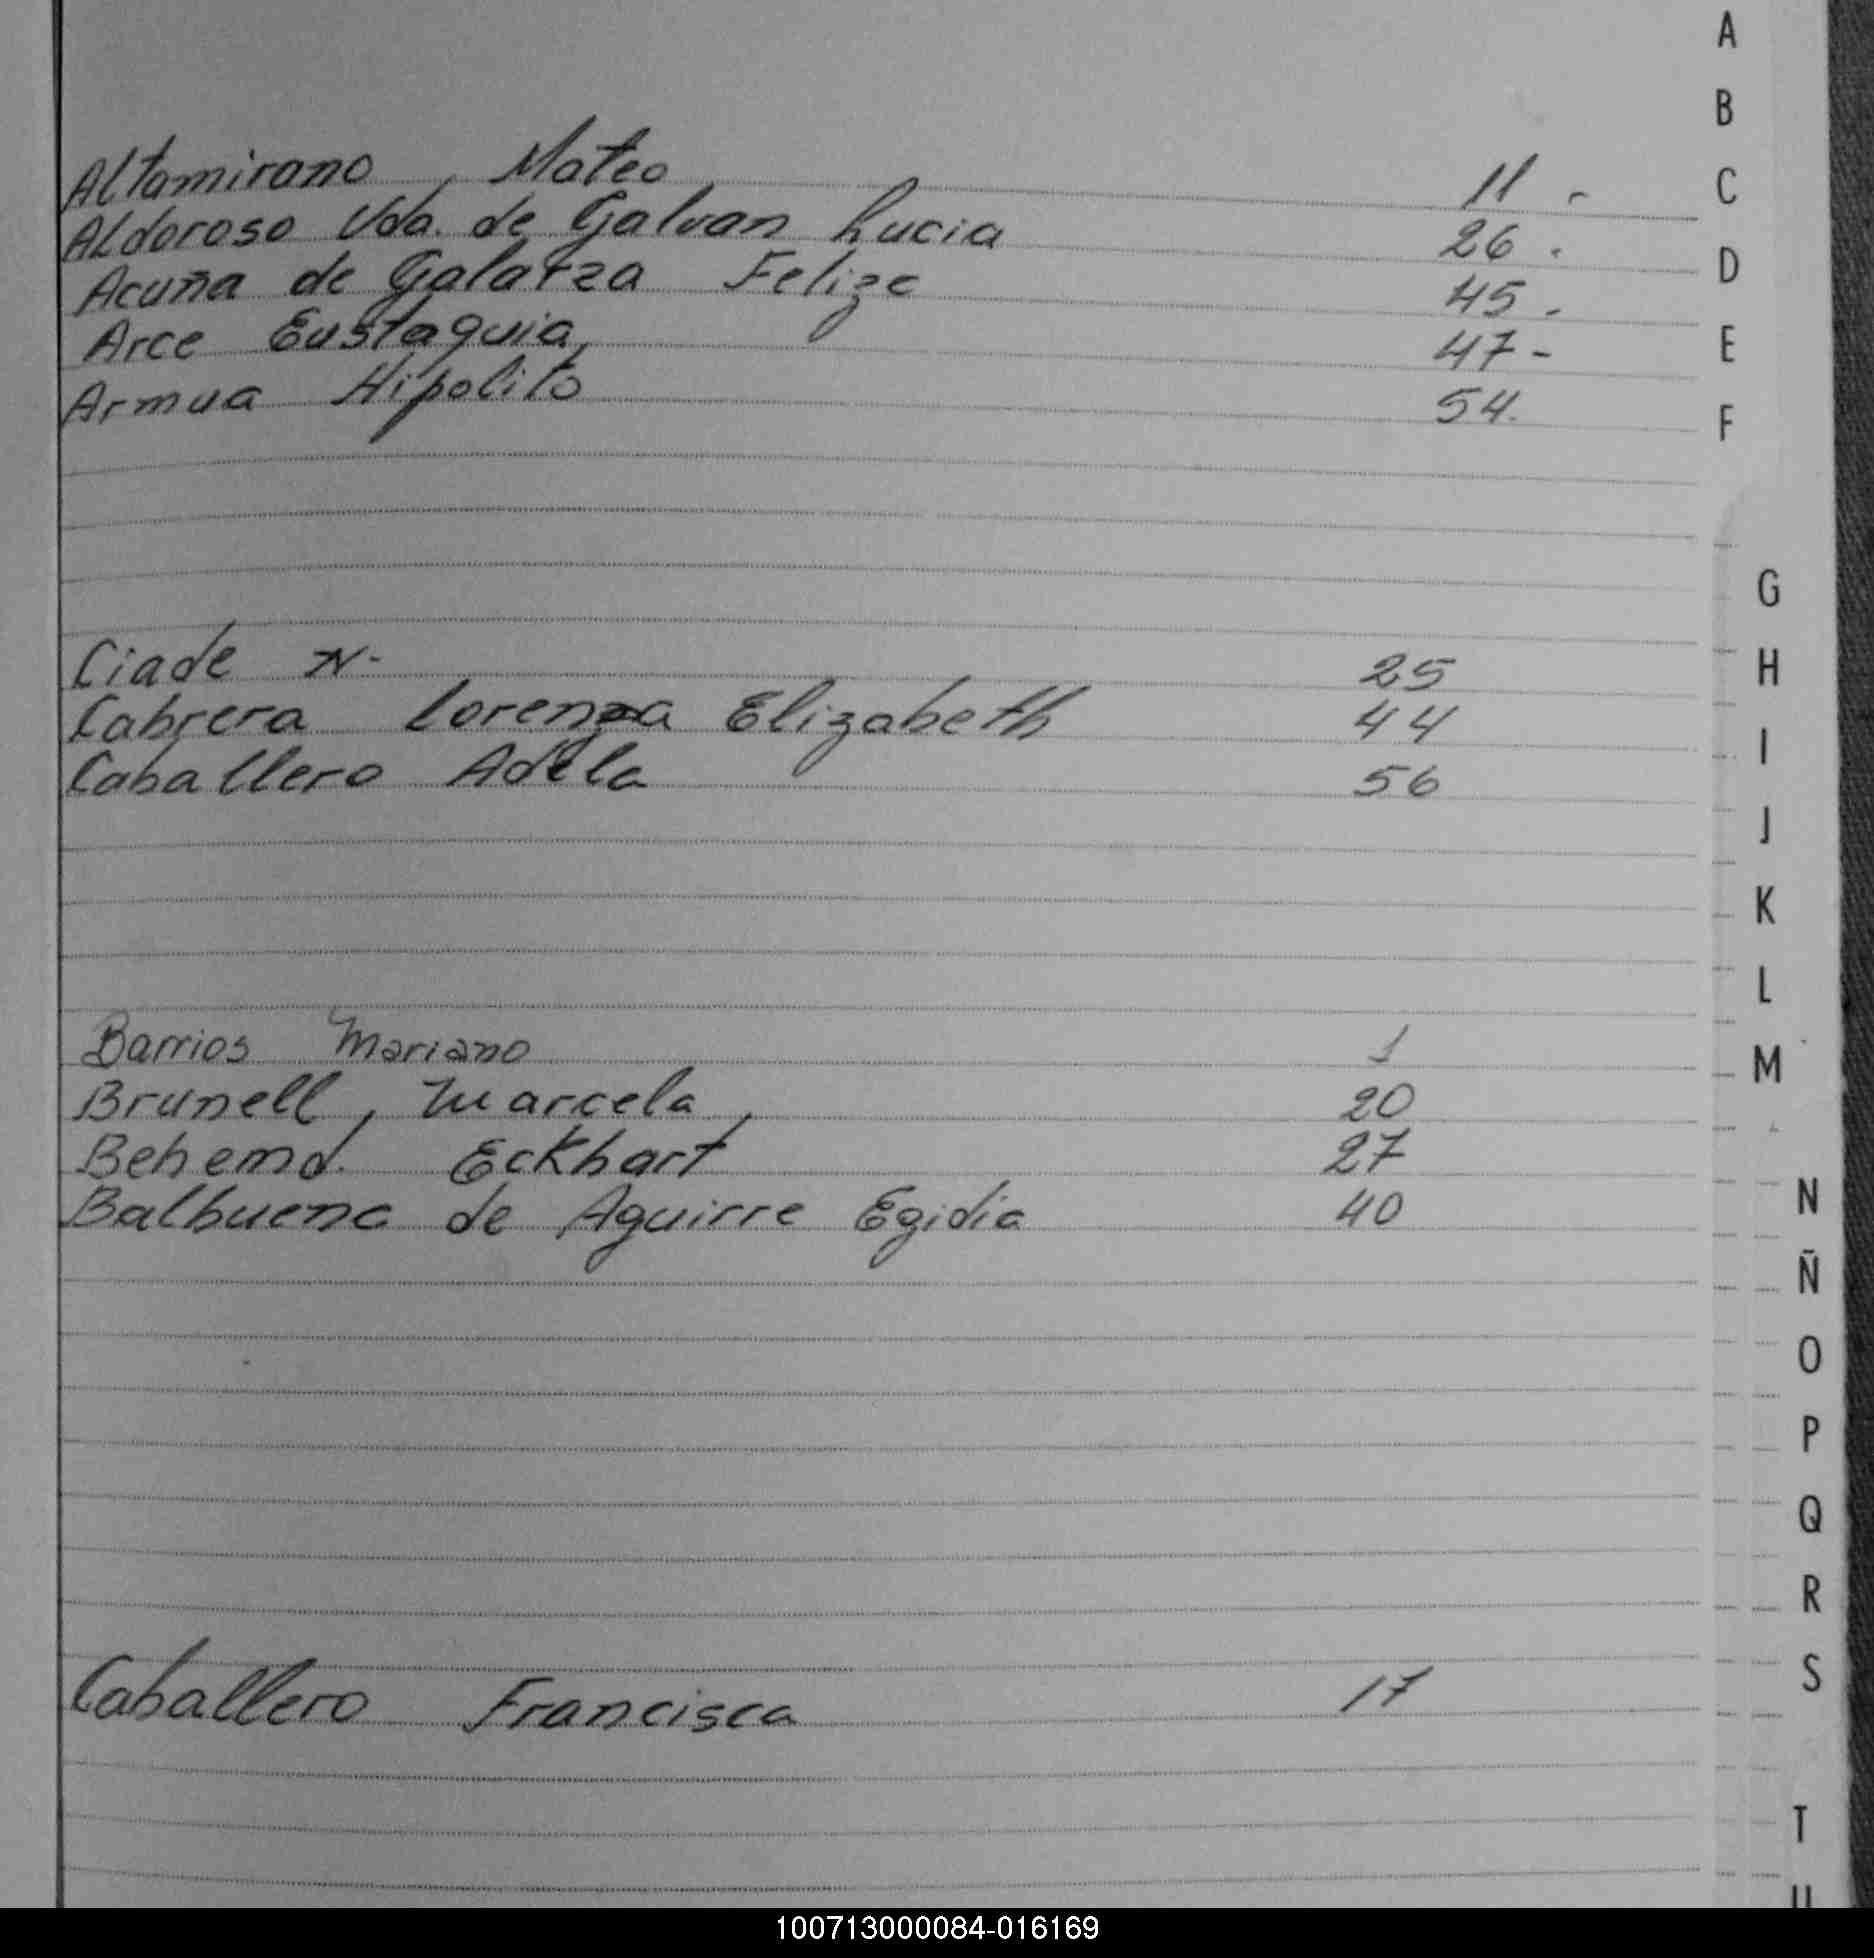 Altamirano, Mateo 11 -
Aldoroso Vda. de Galvan Lucia 26 .
Acuña de Galarza Felize 45 -
Arce Eustaquia 47 -
Armua Hipolito 54.
Ciade N. 25
Cabrera Lorenza Elizabeth 44
Caballero Adela 56
Barrios Mariano 1
Brunell, Marcela, 20
Behemd. Eckhart 27
Balbuena de Aguirre Egidia 40
Caballero Francisca 17
A
B
C
D
E
F
G
H
I
J
K
L
M
N
Ñ
O
P
Q
R
S
T
U
100713000084-016169